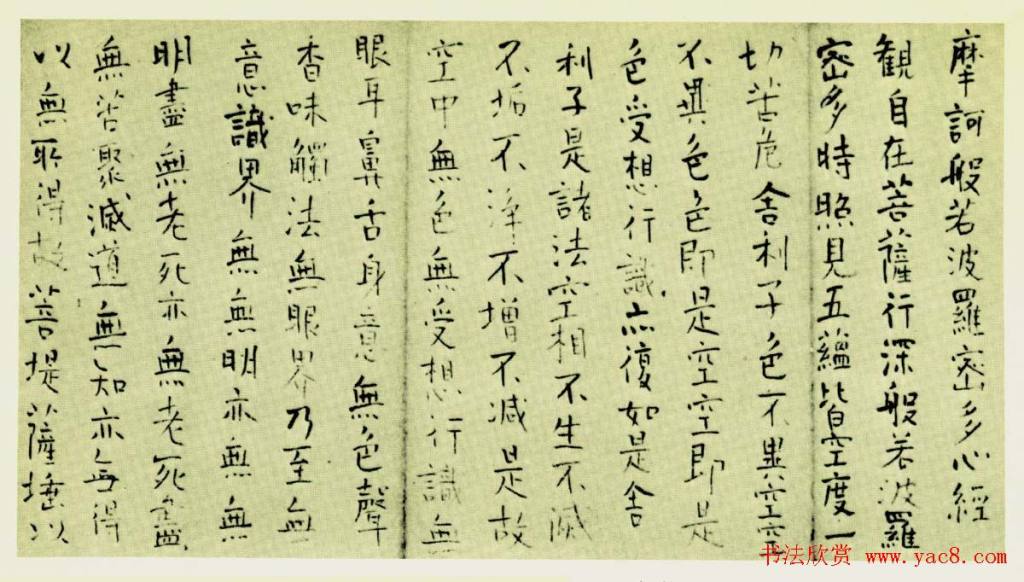 摩訶般若波羅密多心經
観自在菩薩行深般若波羅
密多時照見五蘊皆空度一
切苦危舍利子色不異空空
不異色色即是空空即是
色受想行識亦復如是舍
利子是諸法空相不生不滅
不垢不淨不增不減是故
空中無色無受想行識無
眼耳鼻舌身意無色聲
香味觸法無眼界乃至無
意識界無無明亦無無
明盡無老死亦無老死盡
無苦聚滅道無知亦無得
以無所得故菩提薩埵以
书法欣赏 www.yac8.com